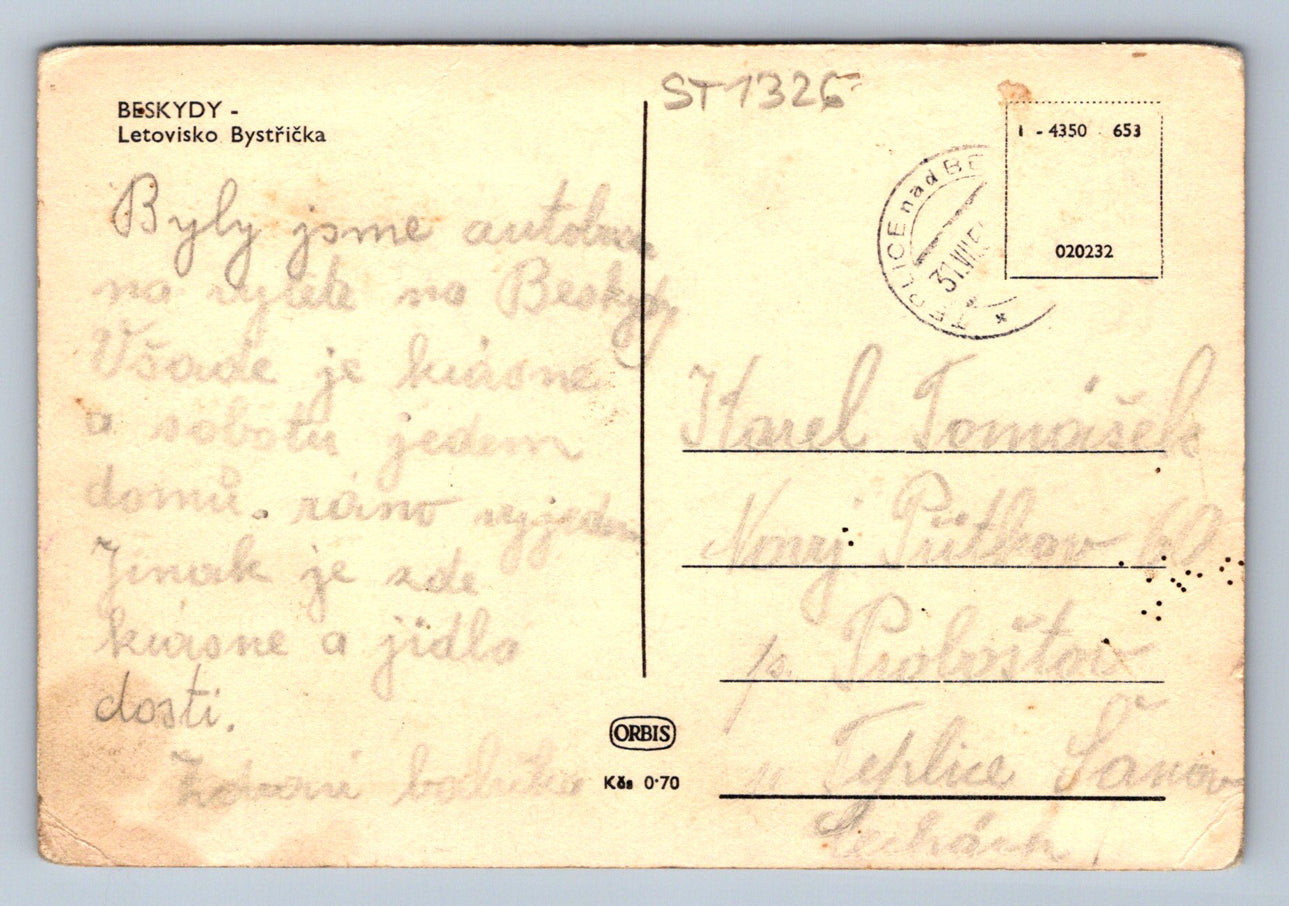 BESKYDY -
Letovisko Bystřička
ST1326
I - 4350 653
020232
TEPLICE nad BE
31.VII.5
Byly jsme
na výletě na Beskydy
Všude je krásne
a sobotu jedem
domů. ráno vyjedem
Jinak je zde
krásne a jídla
dosti.
Zdraví babička
Karel Tomášek
Nový Přítkov 60
p. Proboštov
u Teplice Šanov
Čechách
ORBIS
Kčs 0·70